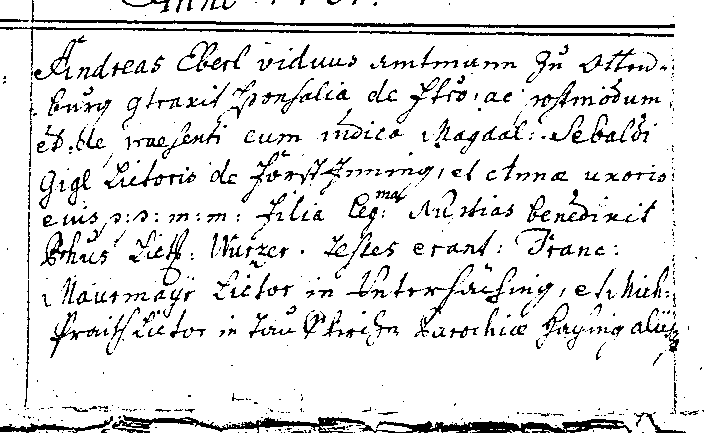 Anno
Andreas Eberl viduus Amtmann zu Otten-
burg gtraxit sponsalia de fut⁰: ac postmodum
et de praesenti cum pudica Magdal: Sebaldi
Gigl Lictoris de Förstinning, et Annae uxoris
eius p: d: m: m: filia leg:ma Nuptias benedixit
Lict: Wurzer. Testes erant: Franc:
Maurmayr Lictor in Unterhäching, et Mich:
Lictor in Taufkirchen Parochiae